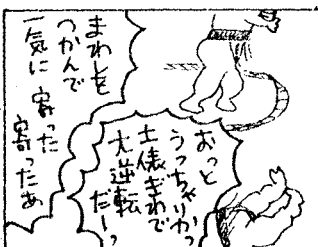 まわしを
つかんで
一気に 寄った
寄ったあ
おっと
うっちゃりかっ
土俵ぎわで
大逆転
だーっ